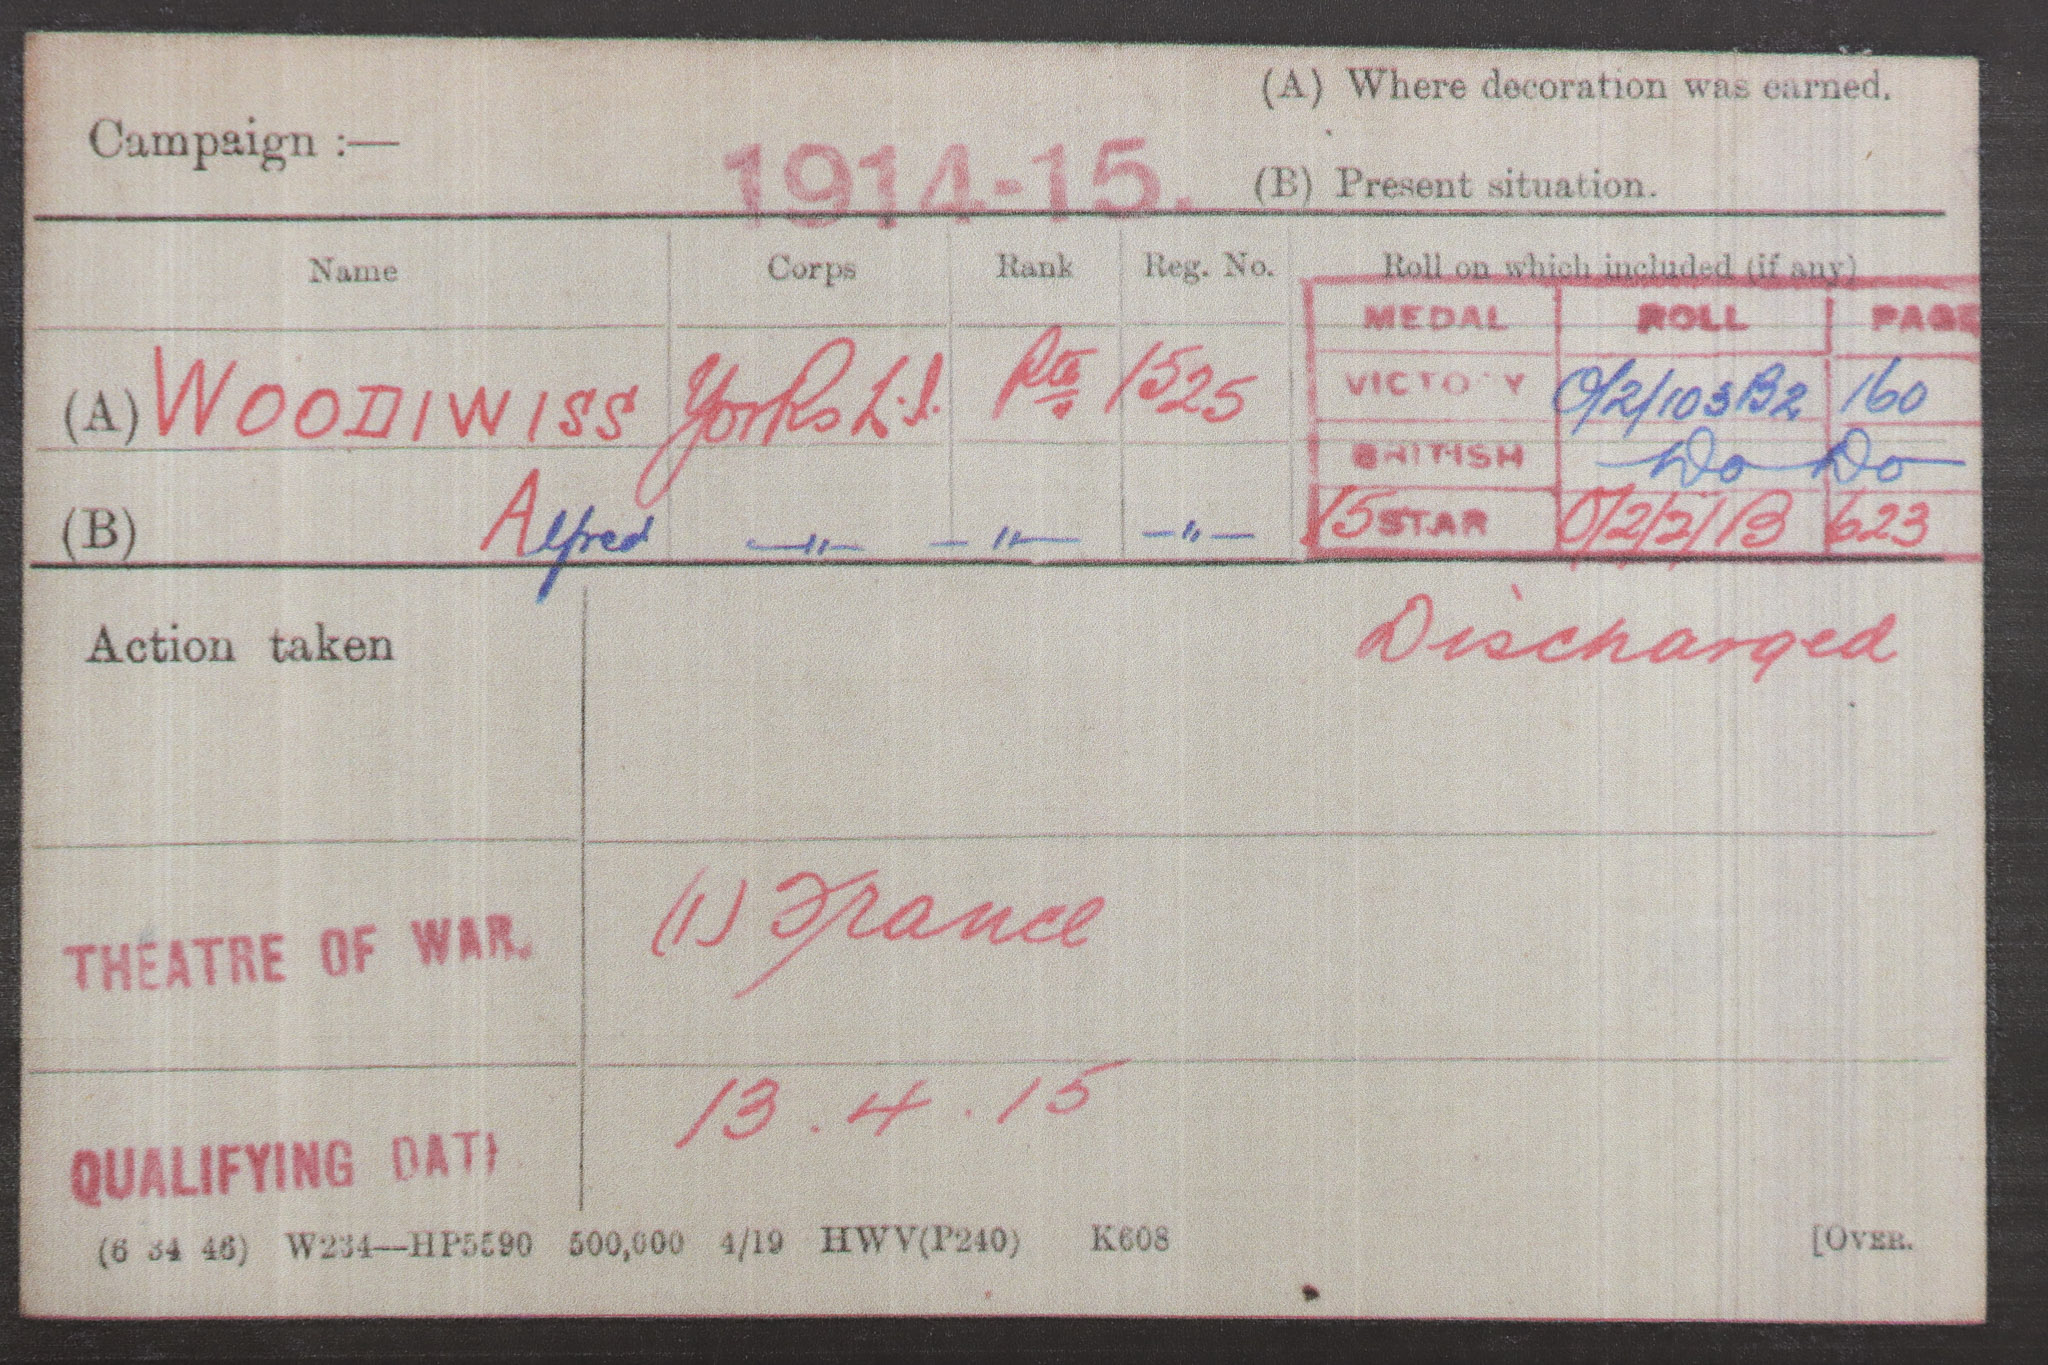 (A) Where decoration was earned.
Campaign :—
1914-15.
(B) Present situation.
Name Corps Rank Reg. No. Roll on which included (if any)
MEDAL ROLL PAGE
(A) WOODIWISS Yorks L.I. Pte 1525 VICTORY O/2/103B2 160
BRITISH Do Do
(B) Alfred —"— —"— —"— 15 STAR O/2/2/B 623
Action taken
Discharged
THEATRE OF WAR. (1) France
QUALIFYING DATE 13.4.15
(6 34 46) W234—HP5590 500,000 4/19 HWV(P240) K608 [OVER.